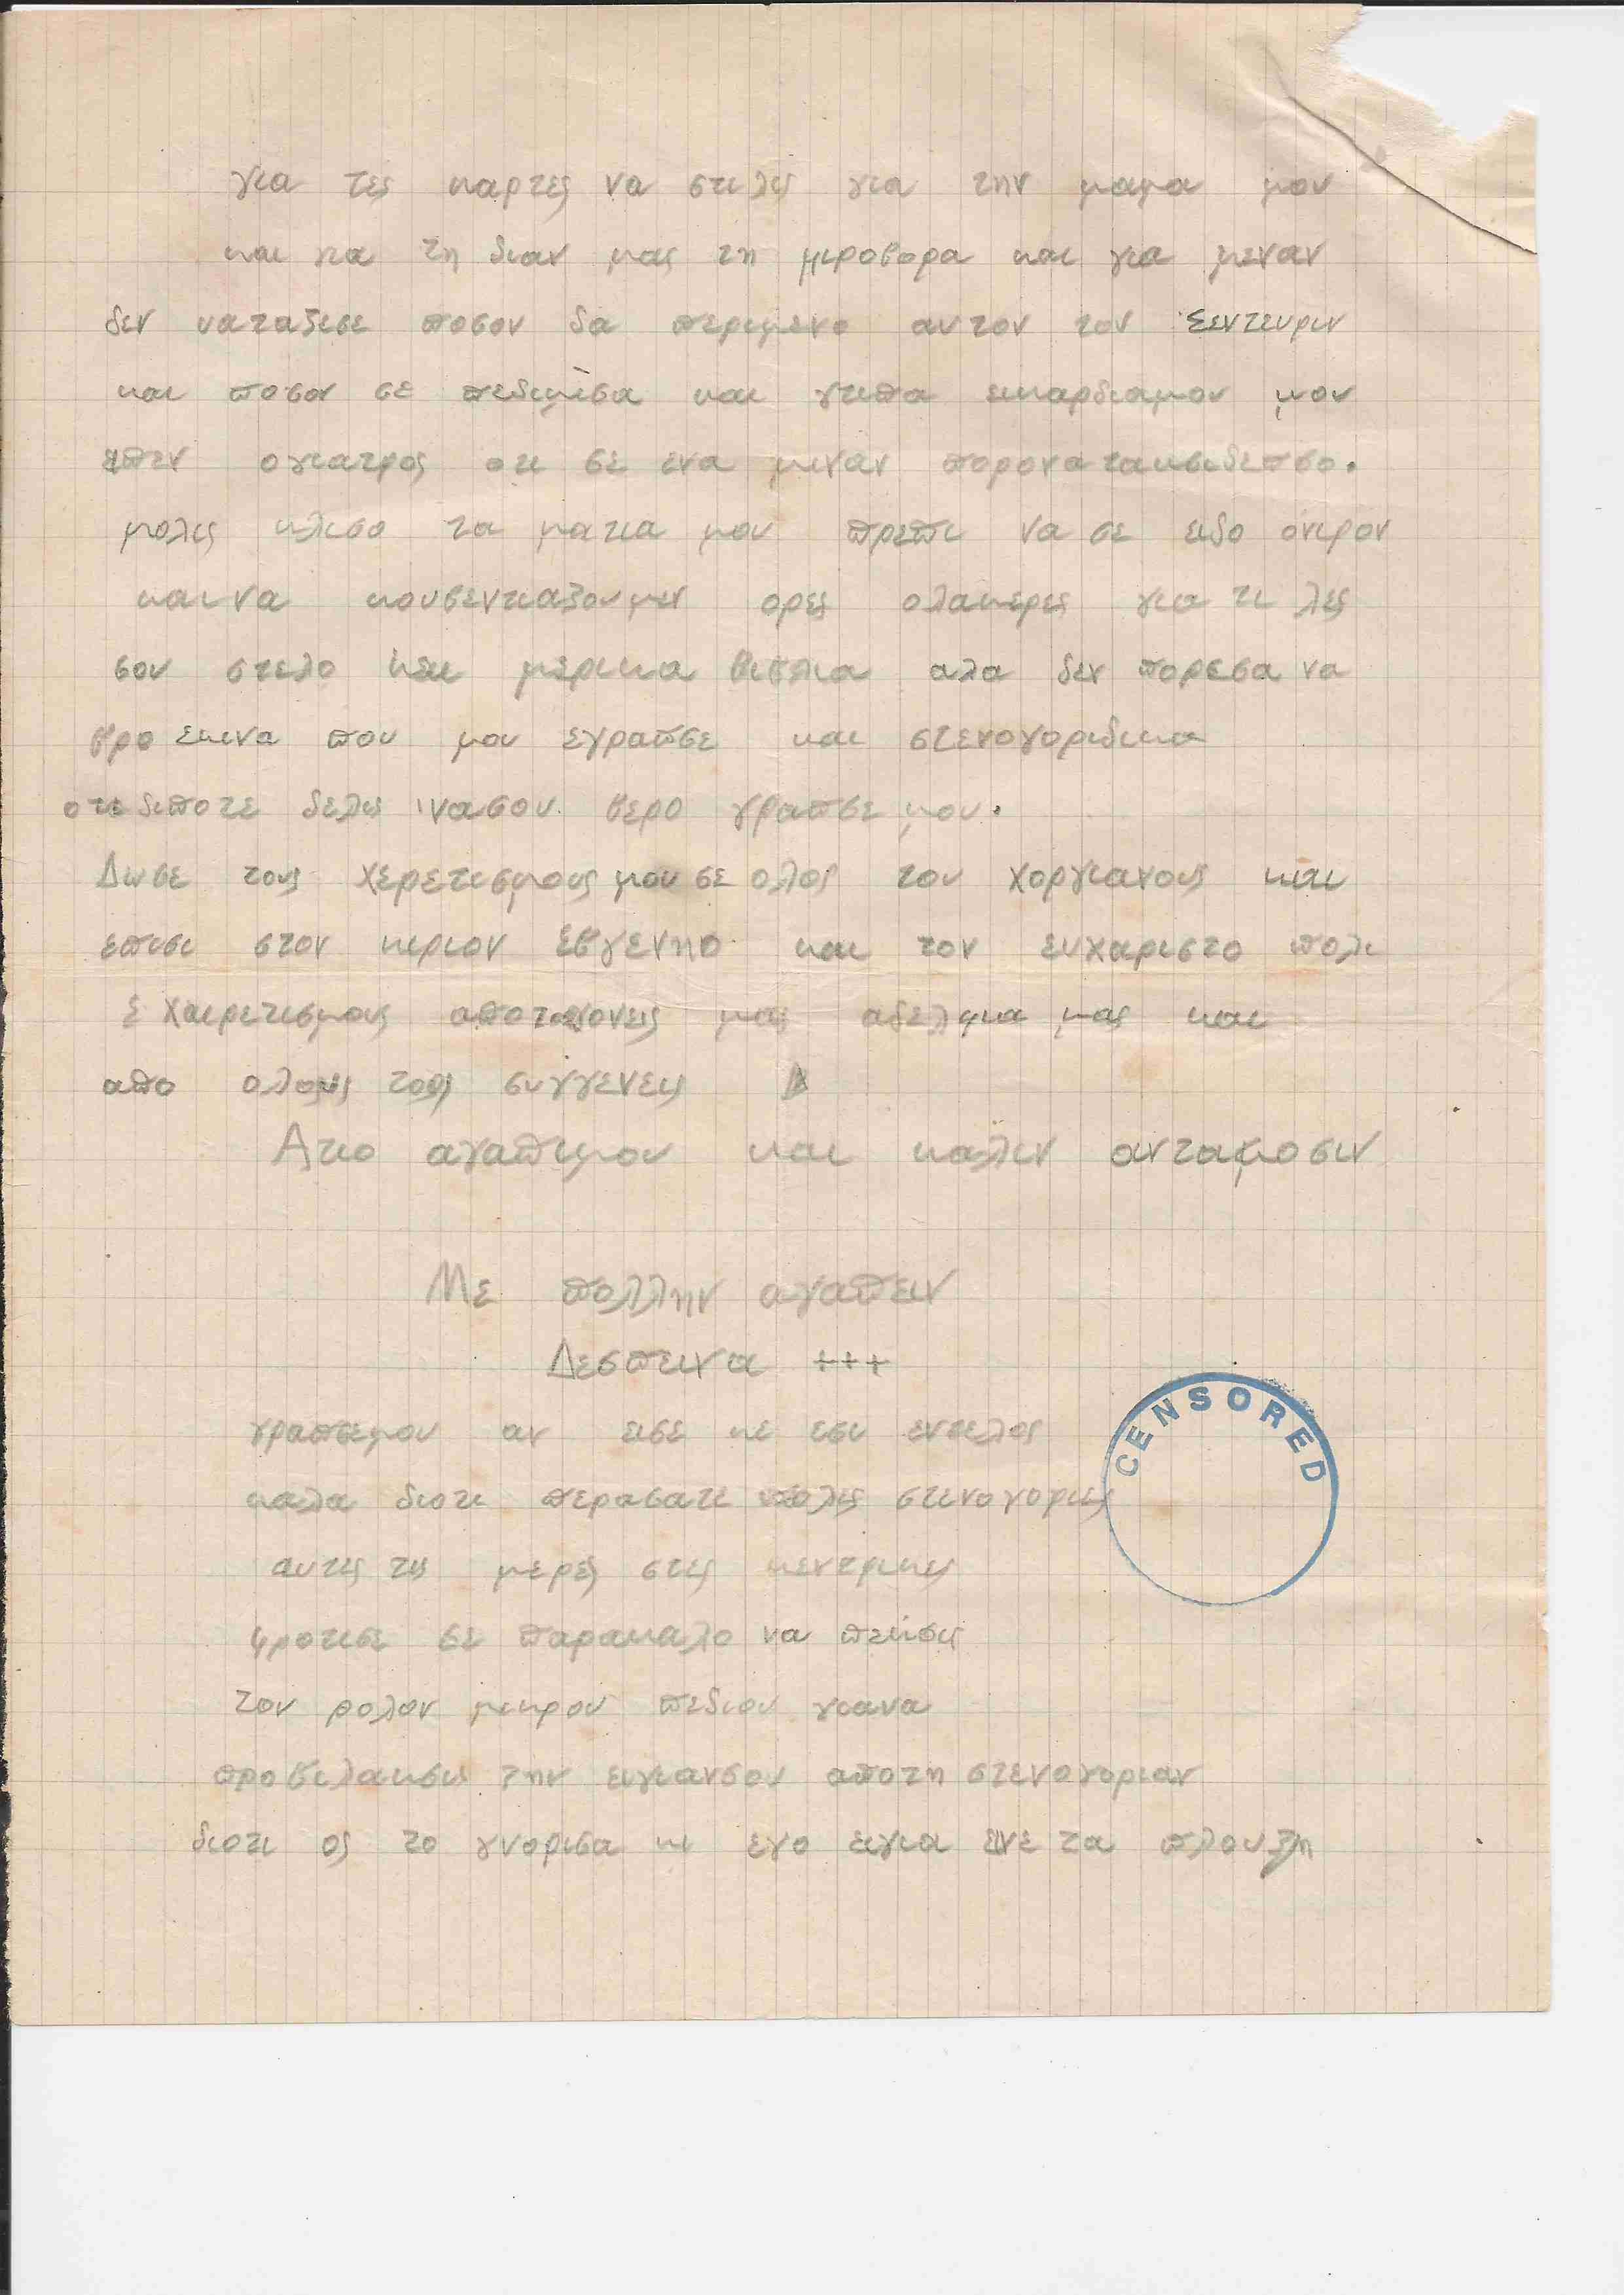 για τες καρτες να στιλις για την μαμα μου
και για τη διαν μας τη μιροφορα και για μεναν
δεν υαταξισε ποσον δα περιμενο αυτον τον Σεντευριν
και ποσον σε πεδιμισα και γτιπα εικαρδιαμον μου
ιπεν ογιατρος οτι σε ενα μιναν πορονα τακσιδεπσο.
μολις κλισο τα ματια μου πρεπι να σε ειδο ονιρον
και να κουβεντιαζουμεν ορες ολακερες για τι λες
σου στελο και μερικα βιβλια αλα δεν πορεσα να
βρο εκινα που μου εγραπσε και στενογοριδικα
οτι διποτε δελις νασου βερο γραπσε μου.
Δωσε τους χερετισμους μου σε ολος του χοργιανους και
επισι στον κιριον Εβγενηο και τον ευχαριστο πολι
ε χαιρετισμους αποτους γονεις μας αδελφια μας και
απο ολους τους συγγενεις
Ατιο αγαπιμου και καλιν ανταμοσιν
Με πολλην αγαπειν
Δεσπεινα +++
γραπσεμου αν εισε κε εσι εντελος
καλα διοτι περασατε πολις στενογοριες
αυτις τις μερες στις κεντρικες
φροτισε σε παρακαλο να πεκσις
τον ρολον μικρου πεδιου γιανα
προβιλακσις την ευγιανσου αποτη στενογοριαν
διοτι ος το γνορισα κι εγο ειγια εινε τα πλουτη
CENSORED